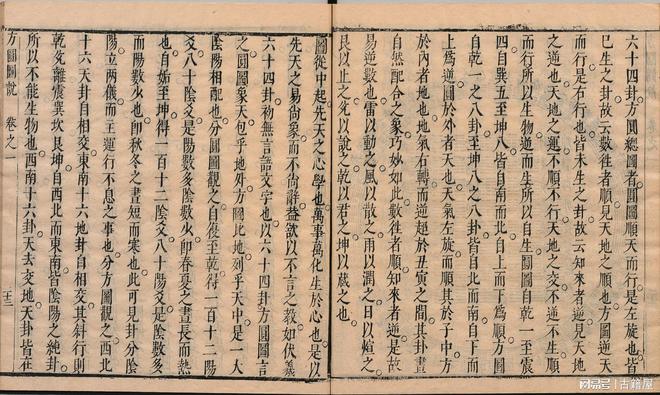 六十四卦方圓總圖者圓圖順天而行是左旋也皆
已生之卦故云數往者順見天地之順也方圖逆天
而行是右行也皆未生之卦故云知來者逆見天地
之逆也天地之運不順不行天地之交不逆不生順
而行所以生物逆而生所以自生圓圖自乾一至震
四自巽五至坤八皆自南而北自上而下為順方圖
自乾一之八卦至坤八之八卦皆自北而南自下而
上為逆圓於外者天也天氣左旋而順其於子中方
於內者地也地氣右轉而逆起於丑寅之間其卦畫
自然配合之象巧妙如此數往者順知來者逆是故
易逆數也雷以動之風以散之雨以潤之日以烜之
艮以止之兌以說之乾以君之坤以藏之也
圖從中起先天之心學也萬事萬化生於心也是以
先天之易尚象而不尚辭蓋欲以不言之教如伏羲
六十四卦初無言語文字也以六十四卦方圓圖言
之圓圖象天包乎地外方圖比地列乎天中是一大
陰陽相配也分圓圖觀之自復至乾得一百十二陽
爻八十陰爻是陽數多陰數少即春夏之晝長而熱
也自姤至坤得一百十二陰爻八十陽爻是陰數多
而陽數少也即秋冬之晝短而寒也此可見卦分陰
陽立兩儀而主運行不息之事也分方圖觀之西北
十六天卦自相交東南十六地卦自相交其斜行則
乾兌離震巽坎艮坤自西北而東南皆陰陽之純卦
所以不能生物也西南十六卦天去交地天卦皆在
方圓圖說 卷之一
十三
网易号 | 古籍屋